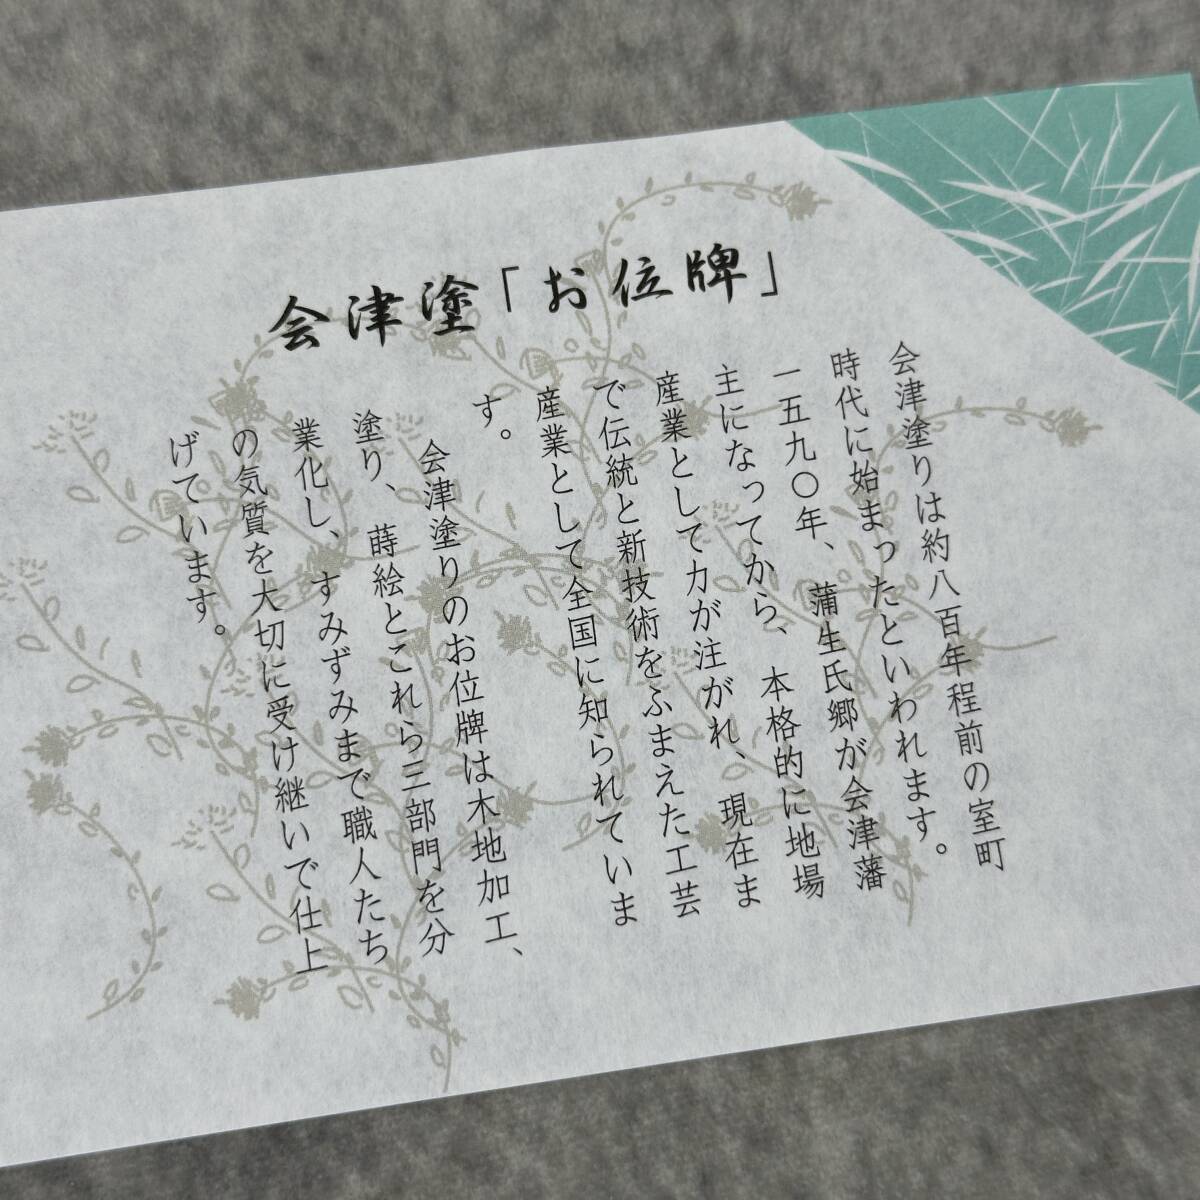 会津塗「お位牌」
会津塗りは約八百年程前の室町
時代に始まったといわれます。
一五九〇年、蒲生氏郷が会津藩
主になってから、本格的に地場
産業として力が注がれ、現在ま
で伝統と新技術をふまえた工芸
産業として全国に知られていま
す。
会津塗りのお位牌は木地加工、
塗り、蒔絵とこれら三部門を分
業化し、すみずみまで職人たち
の気質を大切に受け継いで仕上
げています。